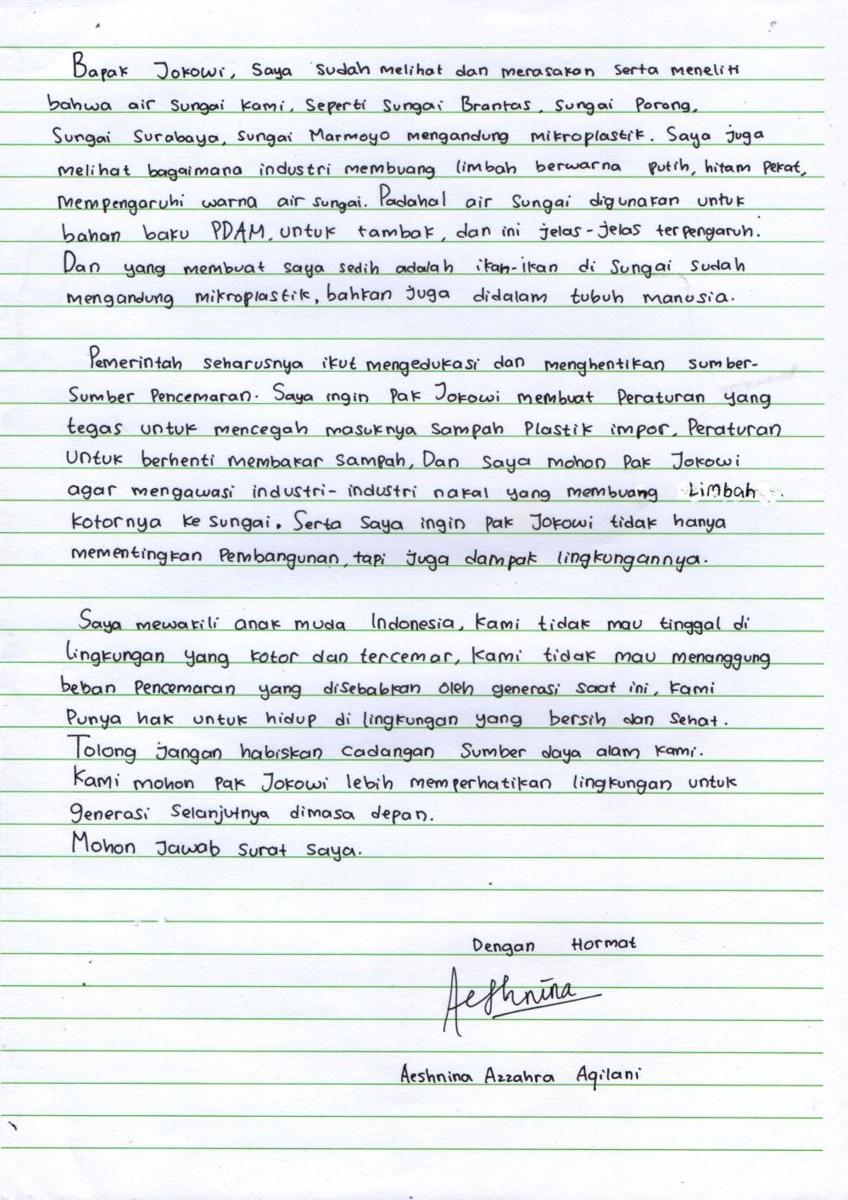 Bapak Jokowi, Saya sudah melihat dan merasakan serta meneliti
bahwa air sungai kami, seperti sungai Brantas, sungai Porong,
Sungai Surabaya, sungai Marmoyo mengandung mikroplastik. Saya juga
melihat bagaimana industri membuang limbah berwarna putih, hitam pekat,
mempengaruhi warna air sungai. Padahal air sungai digunakan untuk
bahan baku PDAM, untuk tambak, dan ini jelas-jelas terpengaruh.
Dan yang membuat saya sedih adalah ikan-ikan di sungai sudah
mengandung mikroplastik, bahkan juga didalam tubuh manusia.
Pemerintah seharusnya ikut mengedukasi dan menghentikan sumber-
sumber pencemaran. Saya ingin Pak Jokowi membuat Peraturan yang
tegas untuk mencegah masuknya sampah plastik impor, Peraturan
untuk berhenti membakar sampah, Dan saya mohon Pak Jokowi
agar mengawasi industri-industri nakal yang membuang Limbah
kotornya ke sungai. Serta saya ingin pak Jokowi tidak hanya
mementingkan pembangunan, tapi juga dampak lingkungannya.
Saya mewakili anak muda Indonesia, kami tidak mau tinggal di
lingkungan yang kotor dan tercemar, kami tidak mau menanggung
beban pencemaran yang disebabkan oleh generasi saat ini, kami
punya hak untuk hidup di lingkungan yang bersih dan sehat.
Tolong jangan habiskan cadangan sumber daya alam kami.
Kami mohon Pak Jokowi lebih memperhatikan lingkungan untuk
generasi selanjutnya dimasa depan.
Mohon Jawab surat saya.
Dengan Hormat
Aeshnina
Aeshnina Azzahra Aqilani